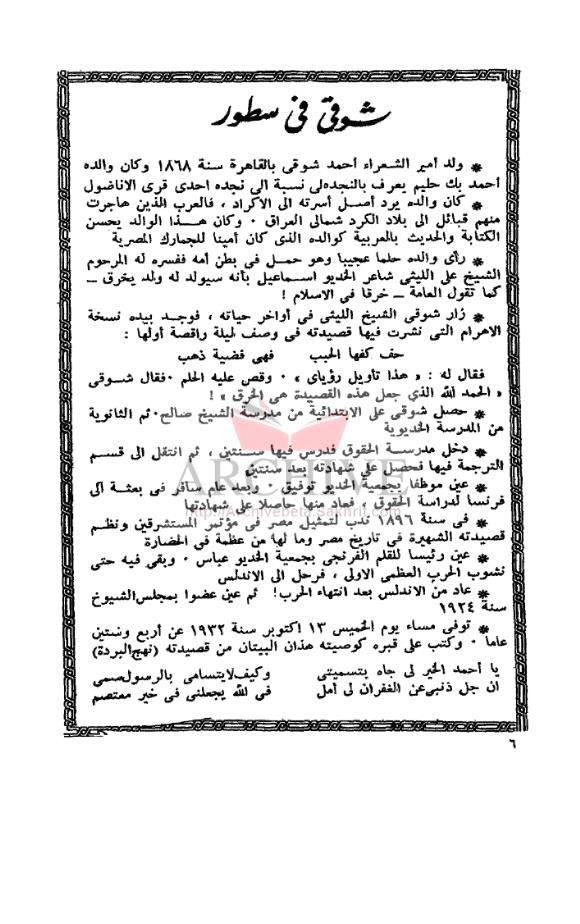 شوقي في سطور
* ولد أمير الشعراء أحمد شوقى بالقاهرة سنة ١٨٦٨ وكان والده
أحمد بك حليم يعرف بالنجدهلى نسبة الى نجده احدى قرى الاناضول
* كان والده يرد أصل أسرته الى الاكراد ، فالعرب الذين هاجرت
منهم قبائل الى بلاد الكرد شمالى العراق ٠ وكان هذا الوالد يحسن
الكتابة والحديث بالعربية كوالده الذى كان أمينا للجمارك المصرية
* رأى والده حلما عجيبا وهو حمل فى بطن أمه ففسره له المرحوم
الشيخ على الليثى شاعر الخديو اسماعيل بأنه سيولد له ولد يخرق ــ
كما تقول العامة ــ خرقا فى الاسلام !
* زار شوقى الشيخ الليثى فى أواخر حياته ، فوجد بيده نسخة
الاهرام التى نشرت فيها قصيدته فى وصف ليلة راقصة أولها :
حف كفها الحبب فهى فضية ذهب
فقال له : « هذا تأويل رؤياى » ٠ وقص عليه الحلم ٠ فقال شوقى
« الحمد لله الذي جعل هذه القصيدة هى الخرق » !
* حصل شوقى على الابتدائية من مدرسة الشيخ صالح ٠ ثم الثانوية
من المدرسة الخديوية
* دخل مدرسة الحقوق فدرس فيها سنتين ، ثم انتقل الى قسم
الترجمة فيها فحصل على شهادته بعد سنتين
* عين موظفا بجمعية الخديو توفيق ٠ وبعد عام سافر فى بعثة الى
فرنسا لدراسة الحقوق ، فعاد منها حاصلا على شهادتها
* فى سنة ١٨٩٦ ندب لتمثيل مصر فى مؤتمر المستشرقين ونظم
قصيدته الشهيرة فى تاريخ مصر وما لها من عظمة فى الحضارة
* عين رئيسا للقلم الفرنجى بجمعية الخديو عباس ٠ وبقى فيه حتى
نشوب الحرب العظمى الاولى ، فرحل الى الاندلس
* عاد من الاندلس بعد انتهاء الحرب! ثم عين عضوا بمجلس الشيوخ
سنة ١٩٢٤
* توفى مساء يوم الخميس ١٣ اكتوبر سنة ١٩٣٢ عن أربع وستين
عاما ٠ وكتب على قبره كوصيته هذان البيتان من قصيدته (نهج البردة)
يا أحمد الخير لى جاه بتسميتى وكيف لايتسامى بالرسول سمى
ان جل ذنبى عن الغفران لى أمل فى الله يجعلنى فى خير معتصم
٦
ARCHIVE
http://Archivebeta.Sakhrit.com